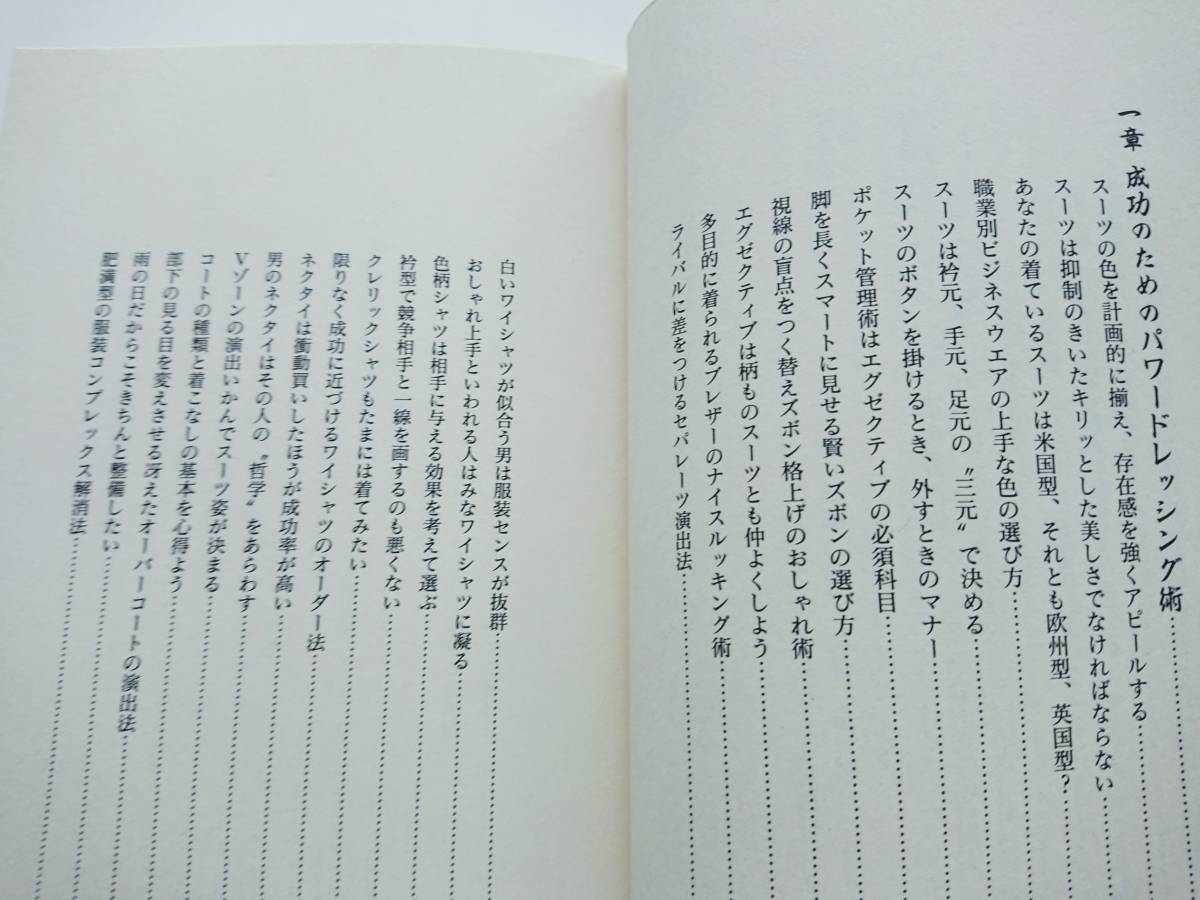 一章 成功のためのパワードレッシング術
スーツの色を計画的に揃え、存在感を強くアピールする
スーツは抑制のきいたキリッとした美しさでなければならない
あなたの着ているスーツは米国型、それとも欧州型、英国型?
職業別ビジネスウエアの上手な色の選び方
スーツは衿元、手元、足元の〝三元〟で決める
スーツのボタンを掛けるとき、外すときのマナー
ポケット管理術はエグゼクティブの必須科目
脚を長くスマートに見せる賢いズボンの選び方
視線の盲点をつく替えズボン格上げのおしゃれ術
エグゼクティブは柄ものスーツとも仲よくしよう
多目的に着られるブレザーのナイスルッキング術
ライバルに差をつけるセパレーツ演出法
白いワイシャツが似合う男は服装センスが抜群
おしゃれ上手といわれる人はみなワイシャツに凝る
色柄シャツは相手に与える効果を考えて選ぶ
衿型で競争相手と一線を画するのも悪くない
クレリックシャツもたまには着てみたい
限りなく成功に近づけるワイシャツのオーダー法
ネクタイは衝動買いしたほうが成功率が高い
男のネクタイはその人の〝哲学〟をあらわす
Vゾーンの演出いかんでスーツ姿が決まる
コートの種類と着こなしの基本を心得よう
部下の見る目を変えさせる冴えたオーバーコートの演出法
雨の日だからこそきちんと整備したい
肥満型の服装コンプレックス解消法